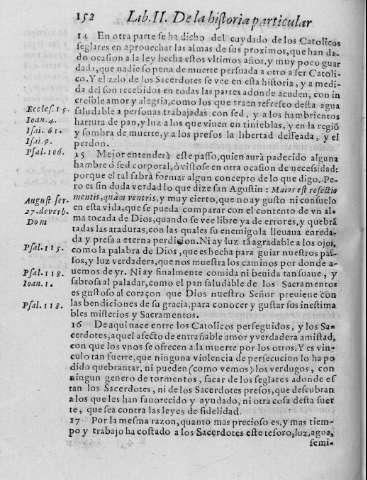 152 Lib. II. De la historia particular
14 En otra parte se ha dicho del cuydado de los Catolicos
seglares en aprouechar las almas de sus proximos, que han da-
do ocasion a la ley hecha estos vltimos años, y muy poco guar
dada, que nadie so pena de muerte persuada a otro a ser Catoli-
co. Y el zelo de los Sacerdotes se vee en esta historia, y a medi-
da del son recebidos en todas las partes adonde acuden, con in
creible amor y alegria, como los que traen refresco desta agua
Eccles. 15. saludable a personas trabajadas con sed, y a los hambrientos
Ioan. 4. hartura de pan, y luz a los que viuen en tinieblas, y en la regiõ
Isai. 61. y sombra de muerte, y a los presos la libertad desseada, y el
Isai. 9. perdon.
Psal. 106. 15 Mejor entenderà este passo, quien aurà padecido alguna
hambre ò sed corporal, ò vistose en otra ocasion de necessidad:
porque el tal sabrà formar algun concepto de lo que digo. Pe-
ro es sin duda verdad lo que dize san Agustin: Maior est refectio
August. ser. mentis, quàm ventris, y muy cierto, que no ay gusto ni consuelo
27. de verb. en esta vida, que se pueda comparar con el contento de vn al-
Dom ma tocada de Dios, quando se vee libre ya de errores, y quebrã
tadas las ataduras, con las quales su enemigo la lleuana enreda-
da y presa a eterna perdicion. Ni ay luz tã agradable a los ojos,
Psal. 115. como la palabra de Dios, que es hecha para guiar nuestros pas-
sos, y luz verdadera, que nos muestra los caminos por donde a-
Psal. 118. uemos de yr. Ni ay finalmente comida ni beuida tan suaue, y
Ioan. 1. sabrosa al paladar, como el pan saludable de los Sacramentos
es gustoso al coraçon que Dios nuestro Señor preuiene con
Psal. 118. las bendiciones de su gracia, para conocer y gustar sos inestima
bles misterios y Sacramentos.
16 De aqui nace entre los Catolicos perseguidos, y los Sa-
cerdotes, aquel afecto de entrañable amor y verdadera amistad,
con que los vnos se ofrecen a la muerte por los otros. Y es vin-
culo tan fuerte, que ninguna violencia de persecucion lo ha po
dido quebrantar, ni pueden (como vemos) los verdugos, con
ningun genero de tormentos, sacar de los seglares adonde es
tan los Sacerdotes, ni de los Sacerdotes presos, que descubran
a los que les han fauorecido y ayudado, ni otra cosa desta suer
te, que sea contra las leyes de fidelidad.
17 Por la mesma razon, quanto mas precioso es, y mas tiem-
po y trabajo ha costado a los Sacerdotes este tesoro, luz, agua,
semi-